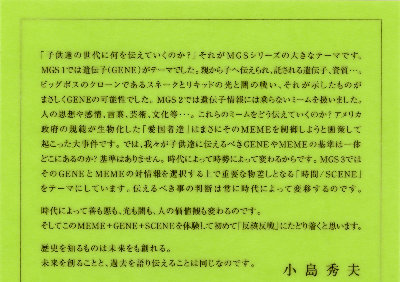 「子供達の世代に何を伝えていくのか？」それがMGSシリーズの大きなテーマです。
MGS1では遺伝子(GENE)がテーマでした。親から子へ伝えられ、託される遺伝子、資質…。
ビッグボスのクローンであるスネークとリキッドの光と闇の戦い、それが示したものが
まさしくGENEの可能性でした。MGS2では遺伝子情報には乗らないミームを扱いました。
人の思想や感情、言葉、芸術、文化等…。これらのミームをどう伝えていくのか？アメリカ
政府の規範が生物化した「愛国者達」はまさにそのMEMEを制御しようと画策して
起こった大事件です。では、我々が子供達に伝えるべきGENEやMEMEの基準は一体
どこにあるのか？基準はありません。時代によって時勢によって変わるからです。MGS3では
そのGENEとMEMEの対情報を選択する上で重要な物差しとなる「時間／SCENE」
をテーマにしています。伝えるべき事の判断は常に時代によって変移するのです。
時代によって善も悪も、光も闇も、人の価値観も変わるのです。
そしてこのMEME+GENE+SCENEを体験して初めて「反核反戦」にたどり着くと思います。
歴史を知るものは未来をも創れる。
未来を創ることと、過去を語り伝えることは同じなのです。
小島秀夫